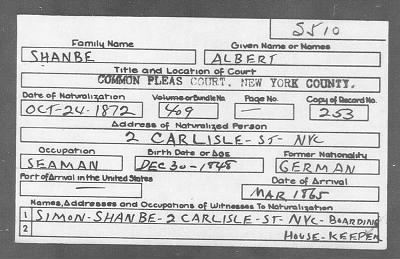 S510
Family Name Given Name or Names
SHANBE ALBERT
Title and Location of Court
COMMON PLEAS COURT, NEW YORK COUNTY.
Date of Naturalization Volume or Bundle No. Page No. Copy of Record No.
OCT-24-1872 409 — 253
Address of Naturalized Person
2 CARLISLE-ST-NYC
Occupation Birth Date or Age Former Nationality
SEAMAN DEC 30-1848 GERMAN
Port of Arrival in the United States Date of Arrival
— MAR 1865
Names, Addresses and Occupations of Witnesses To Naturalization
1 SIMON-SHANBE-2 CARLISLE-ST-NYC-BOARDING
2 HOUSE-KEEPER